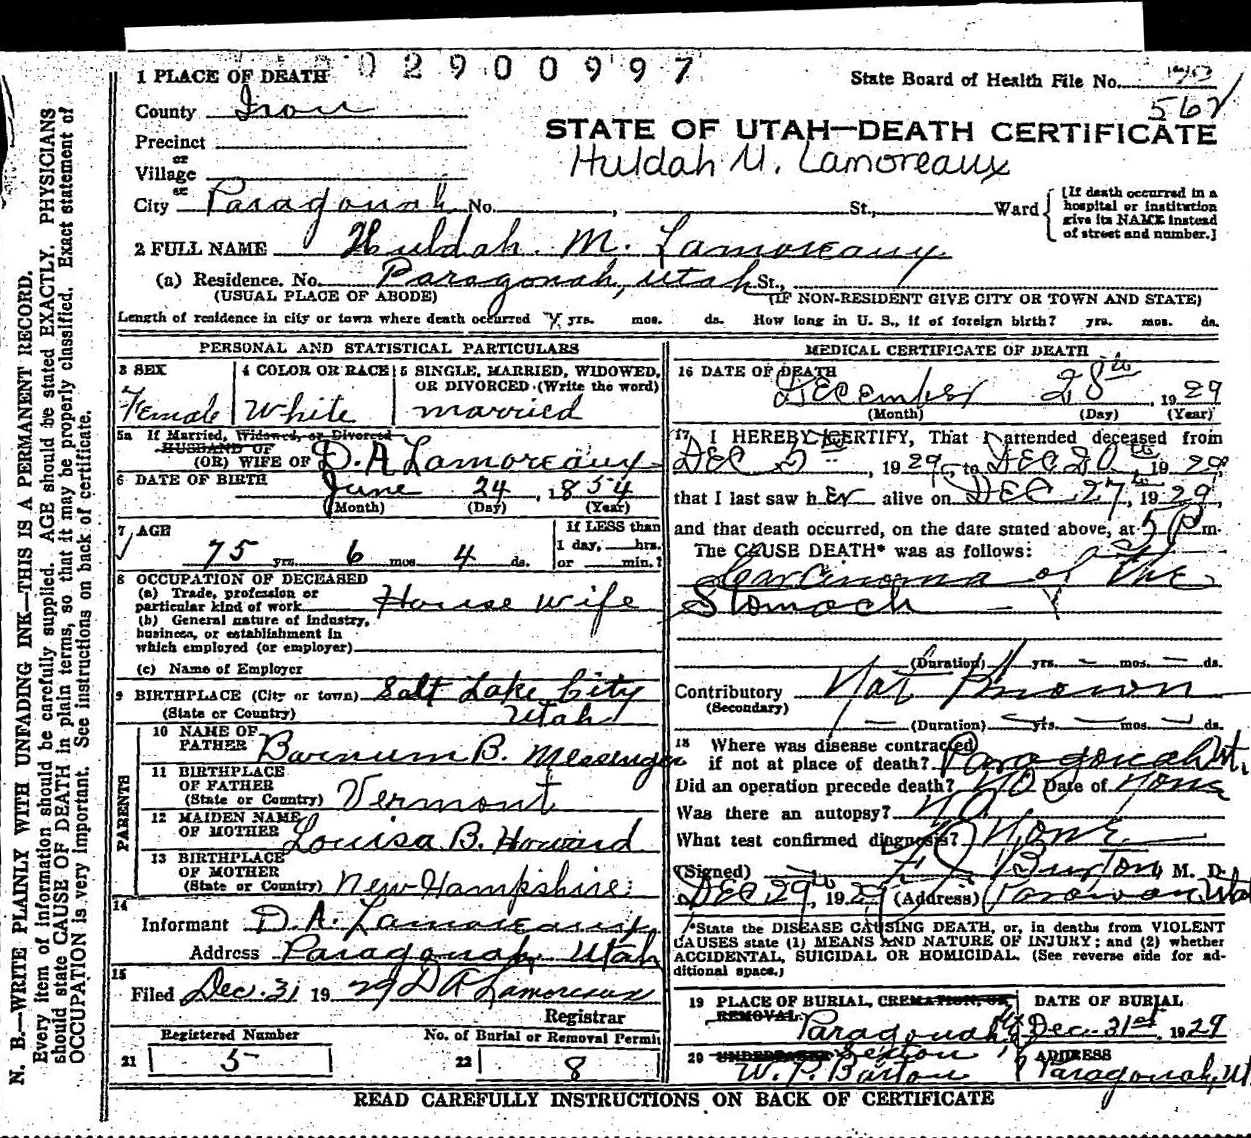 1 PLACE OF DEATH 02900997
State Board of Health File No.
562
County Iron
STATE OF UTAH—DEATH CERTIFICATE
Precinct
or
Village
Huldah M. Lamoreaux
or
City Paragonah No. , St., Ward
[If death occurred in a
hospital or institution
give its NAME instead
of street and number.]
2 FULL NAME Huldah M. Lamoreaux
(a) Residence. No. Paragonah, Utah St.,
(USUAL PLACE OF ABODE) (IF NON-RESIDENT GIVE CITY OR TOWN AND STATE)
Length of residence in city or town where death occurred yrs. mos. ds. How long in U. S., if of foreign birth? yrs. mos. ds.
PERSONAL AND STATISTICAL PARTICULARS
3 SEX
Female
4 COLOR OR RACE
White
5 SINGLE, MARRIED, WIDOWED,
OR DIVORCED (Write the word)
married
5a If Married, Widowed, or Divorced
HUSBAND OF
(OR) WIFE OF D. A Lamoreaux
6 DATE OF BIRTH June 24, 1854
(Month) (Day) (Year)
7 AGE
75 yrs. 6 mos 4 ds.
If LESS than
1 day, hrs.
or min.?
8 OCCUPATION OF DECEASED
(a) Trade, profession or
particular kind of work House wife
(b) General nature of industry,
business, or establishment in
which employed (or employer)
(c) Name of Employer
9 BIRTHPLACE (City or town) Salt Lake City
(State or Country) Utah
PARENTS
10 NAME OF
FATHER Barnum B. Messenger
11 BIRTHPLACE
OF FATHER
(State or Country) Vermont
12 MAIDEN NAME
OF MOTHER Louisa B. Howard
13 BIRTHPLACE
OF MOTHER
(State or Country) New Hampshire
14
Informant D. A. Lamoreaux
Address Paragonah, Utah
15
Filed Dec. 31 1929 D A Lamoreaux
Registrar
Registered Number No. of Burial or Removal Permit
21 5 22 8
MEDICAL CERTIFICATE OF DEATH
16 DATE OF DEATH
December 28th, 1929
(Month) (Day) (Year)
17 I HEREBY CERTIFY, That I attended deceased from
DEC , 1929, to DEC 20th 1929
that I last saw her alive on DEC 27th, 1929
and that death occurred, on the date stated above, at 5 P m.
The CAUSE DEATH* was as follows:
Carcinoma of the
Stomach
(Duration) yrs. mos. ds.
Contributory Not Known
(Secondary)
(Duration) yrs. mos. ds.
18 Where was disease contracted
if not at place of death? Paragonah Ut.
Did an operation precede death? NO Date of None
Was there an autopsy? NO
What test confirmed diagnosis? None
(Signed) Burton, M. D.
DEC 29th, 1929 (Address) Parowan, Utah
*State the DISEASE CAUSING DEATH, or, in deaths from VIOLENT
CAUSES state (1) MEANS AND NATURE OF INJURY; and (2) whether
ACCIDENTAL, SUICIDAL OR HOMICIDAL. (See reverse side for ad-
ditional space.)
19 PLACE OF BURIAL, CREMATION, OR
REMOVAL.
Paragonah
DATE OF BURIAL
Dec. 31st, 1929
20 UNDERTAKER Sexton
W. P. Barton
ADDRESS
Paragonah, Ut
READ CAREFULLY INSTRUCTIONS ON BACK OF CERTIFICATE
N. B.—WRITE PLAINLY WITH UNFADING INK—THIS IS A PERMANENT RECORD.
Every item of information should be carefully supplied. AGE should be stated EXACTLY. PHYSICIANS
should state CAUSE OF DEATH in plain terms, so that it may be properly classified. Exact statement of
OCCUPATION is very important. See instructions on back of certificate.